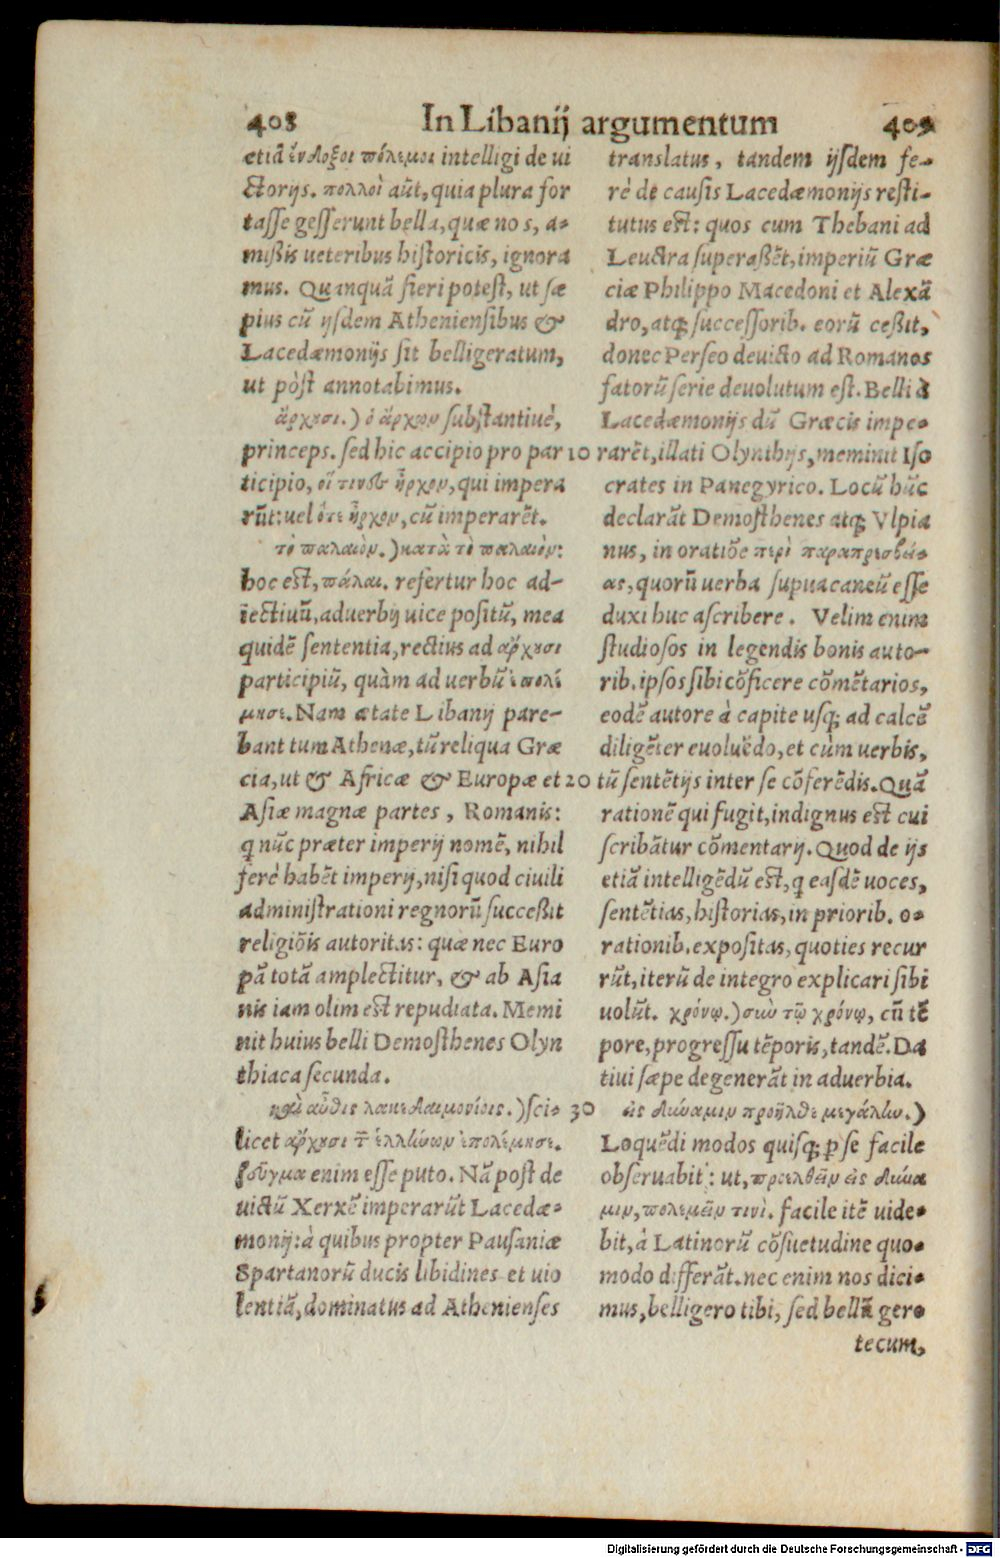 408 In Libanij argumentum 409
etiã ἔνδοξοι πόλεμοι intelligi de ui
ctorijs. πολλοὶ aũt, quia plura for
tasse gesserunt bella, quæ nos, a-
mißis ueteribus historicis, ignora
mus. Quanquã fieri potest, ut sæ
pius cũ ijsdem Atheniensibus &
Lacedæmonijs sit belligeratum,
ut pòst annotabimus.
ἄρχουσι.) ὁ ἄρχων substantiuè,
princeps. sed hic accipio pro par
ticipio, οἵ τινες ἦρχον, qui impera
rũt: uel ὅτε ἦρχον, cũ imperarẽt.
τὸ παλαιὸν.) κατὰ τὸ παλαιὸν:
hoc est, πάλαι. refertur hoc ad-
iectiuũ, aduerbij uice positũ, mea
quidẽ sententia, rectius ad ἄρχουσι
participiũ, quàm ad uerbũ ἐπολέ
μησε. Nam ætate Libanij pare-
bant tum Athenæ, tũ reliqua Græ
cia, ut & Africæ & Europæ et
Asiæ magnæ partes, Romanis:
q̃ nũc præter imperij nomẽ, nihil
ferè habẽt imperij, nisi quod ciuili
administrationi regnorũ succeßit
religiõis autoritas: quæ nec Euro
pã totã amplectitur, & ab Asia
nis iam olim est repudiata. Memi
nit huius belli Demosthenes Olyn
thiaca secunda.
καὶ αὖθις λακεδαιμονίοις.) sci-
licet ἄρχουσι τ̃ ἑλλήνων ἐπολέμησε.
ζεῦγμα enim esse puto. Nã post de
uictũ Xerxẽ imperarũt Lacedæ-
monij: à quibus propter Pausaniæ
Spartanorũ ducis libidines et uio
lentiã, dominatus ad Athenienses
translatus, tandem ijsdem fe-
rè de causis Lacedæmonijs resti-
tutus est: quos cum Thebani ad
Leuctra superaßẽt, imperiũ Græ
ciæ Philippo Macedoni et Alexã
dro, atq; successorib. eorũ ceßit,
donec Perseo deuicto ad Romanos
fatorũ serie deuolutum est. Belli à
Lacedæmonijs dũ Græcis impe-
10 rarẽt, illati Olynthijs, meminit Iso
crates in Panegyrico. Locũ hũc
declarãt Demosthenes atq; Vlpia
nus, in oratiõe περὶ παραπρεσβεί-
ας, quorũ uerba supuacaneũ esse
duxi huc ascribere. Velim enim
studiosos in legendis bonis auto-
rib. ipsos sibi cõficere cõmẽtarios,
eodẽ autore à capite usq; ad calcẽ
diligẽter euoluẽdo, et cùm uerbis,
20 tũ sentẽtijs inter se cõferẽdis. Quã
rationẽ qui fugit, indignus est cui
scribãtur cõmentarij. Quod de ijs
etiã intelligẽdũ est, q̃ easdẽ uoces,
sentẽtias, historias, in priorib. o-
rationib. expositas, quoties recur
rũt, iterũ de integro explicari sibi
uolũt. χρόνῳ.) σὺν τῷ χρόνῳ, cũ tẽ
pore, progressu tẽporis, tandẽ. Da
tiui sæpe degenerãt in aduerbia.
30 εἰς δύναμιν προῆλθε μεγάλην.)
Loquẽdi modos quisq; p̱ se facile
obseruabit: ut, προελθεῖν εἰς δύνα
μιν, πολεμεῖν τινὶ. facile itẽ uide-
bit, à Latinorũ cõsuetudine quo-
modo differãt. nec enim nos dici-
mus, belligero tibi, sed bellũ gero
tecum,
Digitalisierung gefördert durch die Deutsche Forschungsgemeinschaft - DFG